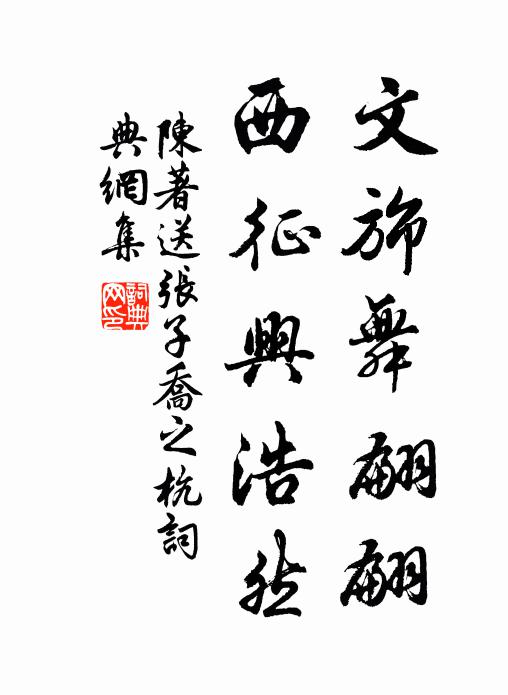 文旆舞翩翩
西征興浩然
陳著送張子喬之杭詞
典網集
詞典
网印